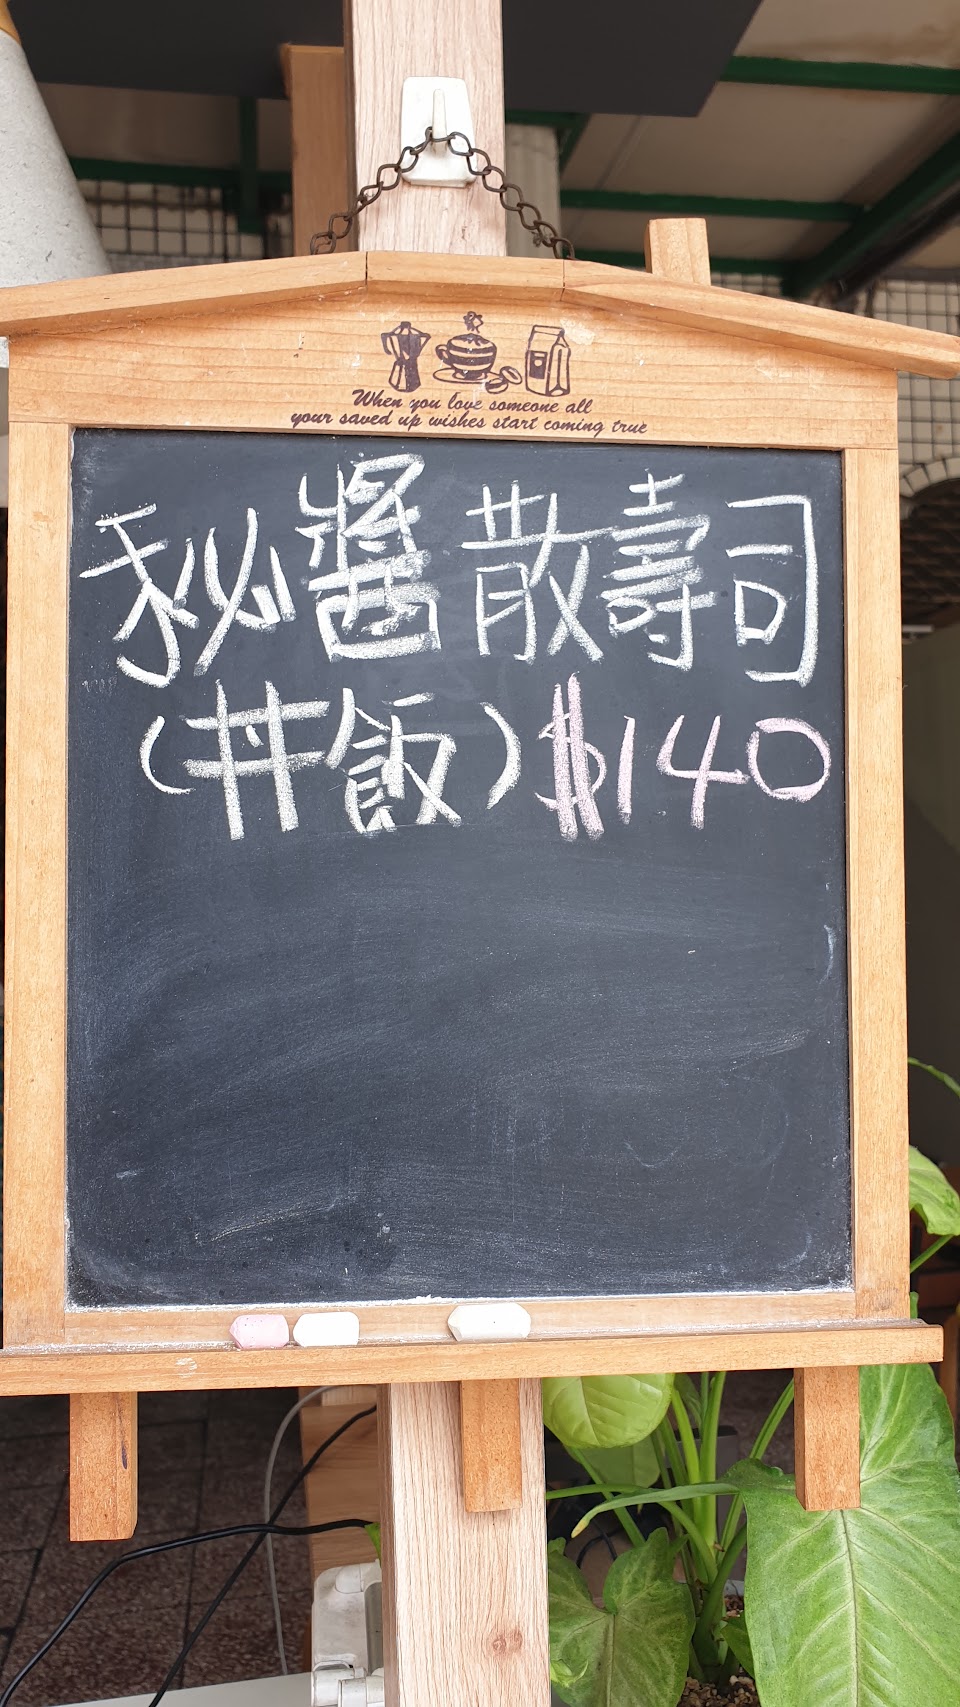 When you love someone all
your saved up wishes start coming true
秘醬散壽司
(丼飯)$140